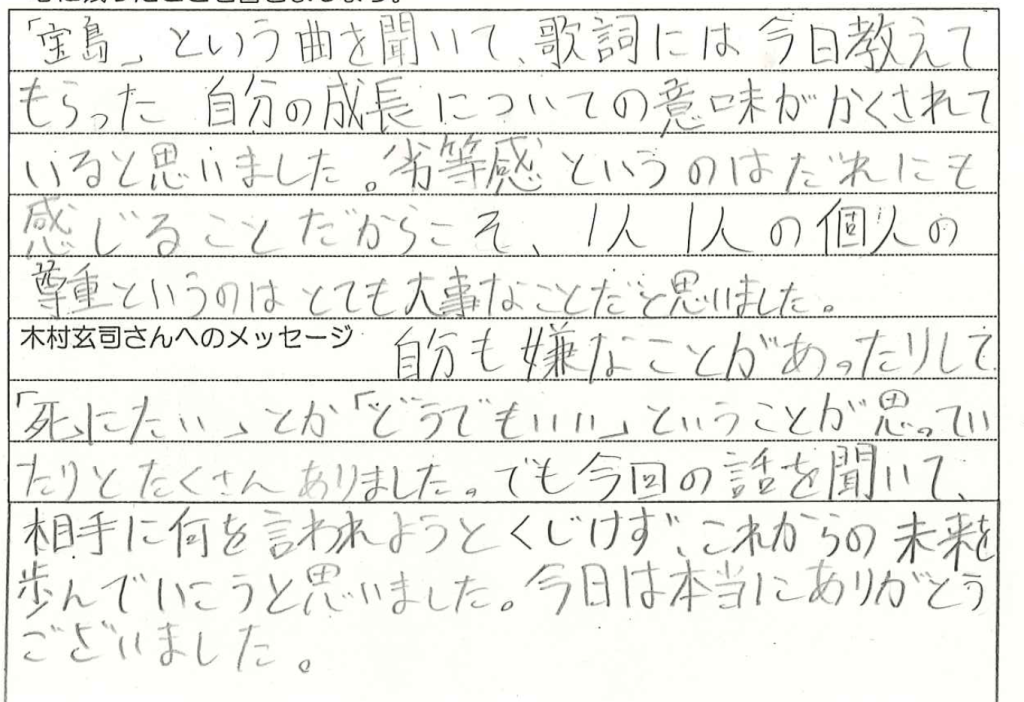 「宝島」という曲を聞いて、歌詞には今日教えて
もらった 自分の成長についての意味がかくされて
いると思いました。劣等感というのはだれにも
感じることだからこそ、1人1人の個人の
尊重というのはとても大事なことだと思いました。
木村玄司さんへのメッセージ 自分も嫌なことがあったりして
「死にたい」とか「どうでもいい」ということが思ってい
たりとたくさんありました。でも今回の話を聞いて、
相手に何を言われようとくじけず、これからの未来を
歩んでいこうと思いました。今日は本当にありがとう
ございました。